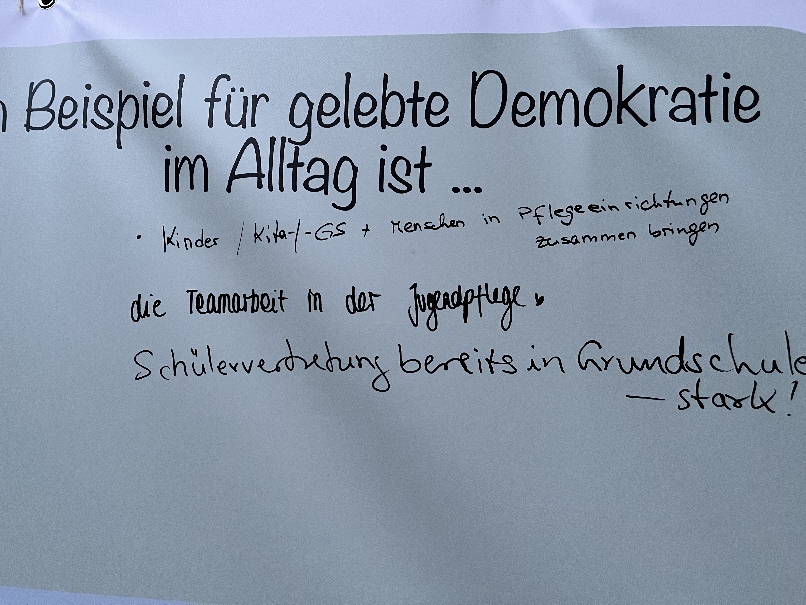 n Beispiel für gelebte Demokratie
im Alltag ist ...
• Kinder / Kita-/-GS + Menschen in Pflegeeinrichtungen
zusammen bringen
die Teamarbeit in der Jugendpflege.
Schülervertretung bereits in Grundschule
— stark!